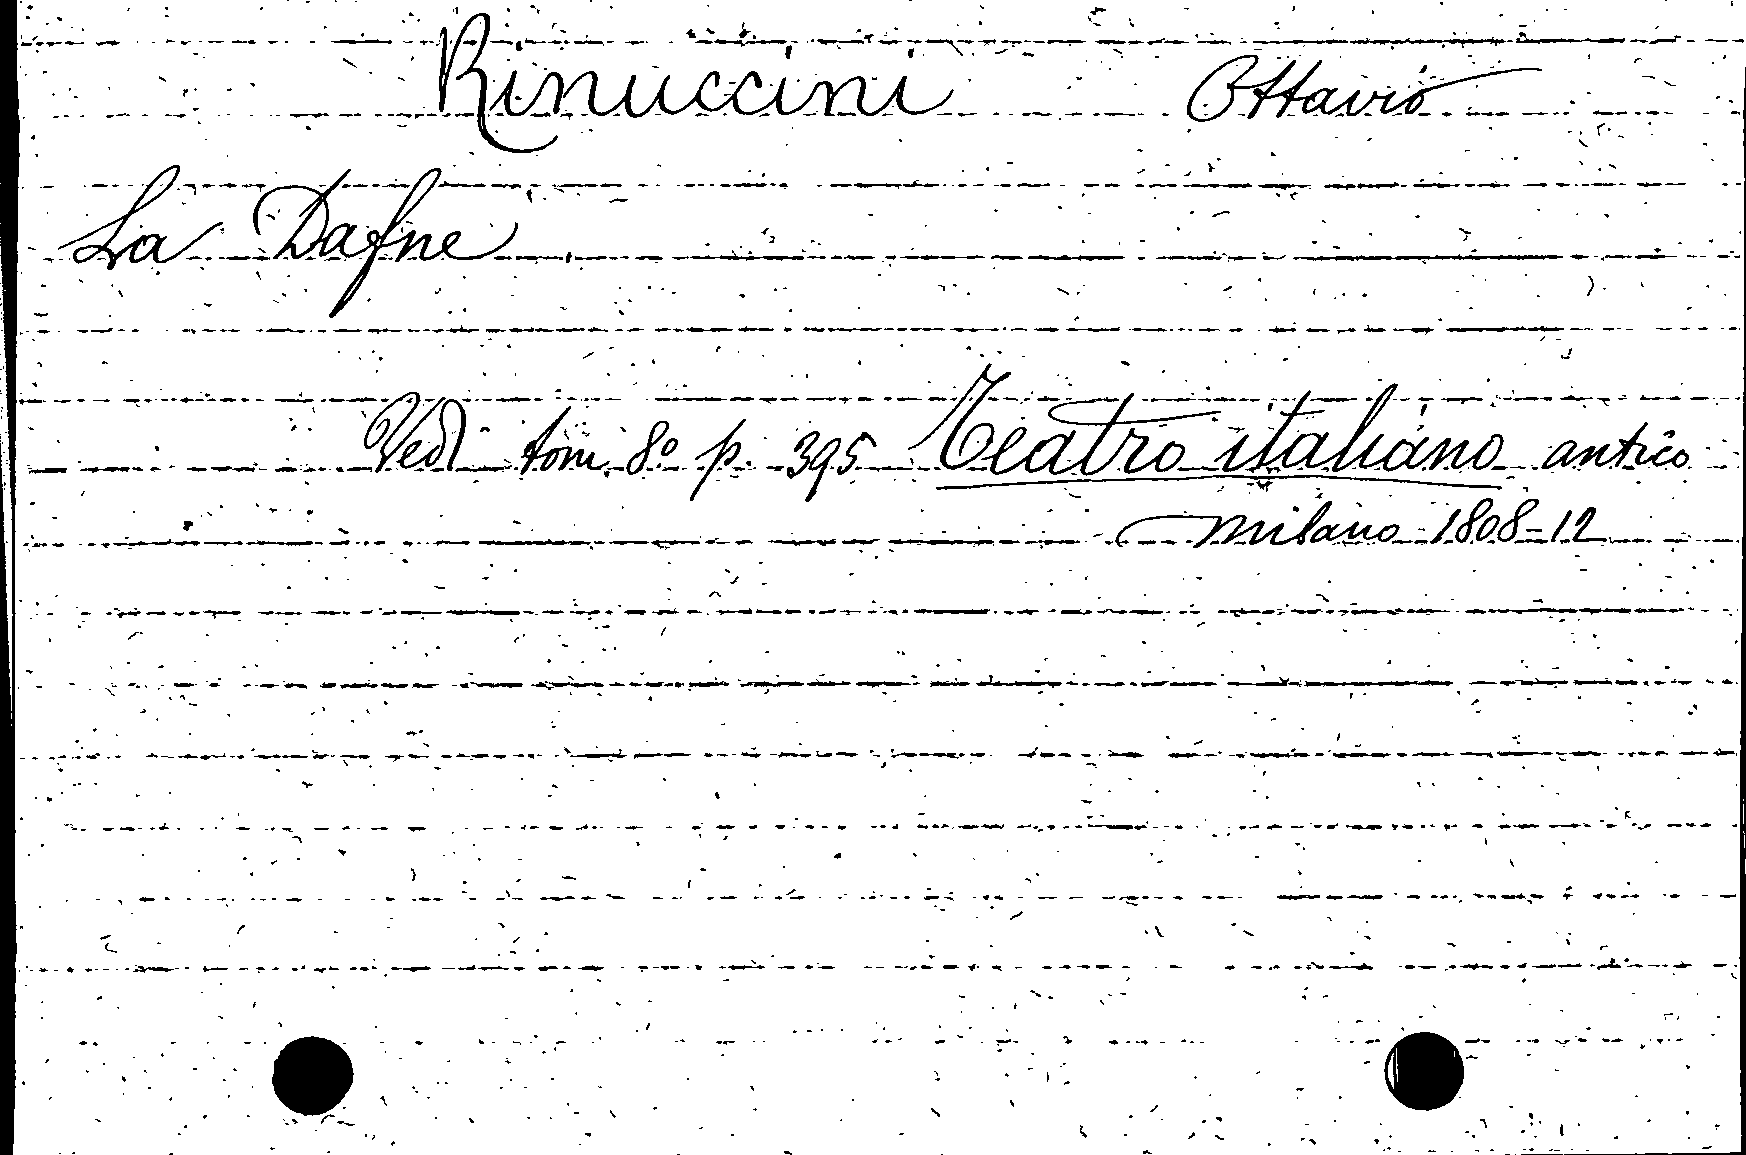 Rinuccini Ottavio
La Dafne
Vedi tom. 8º p. 395 Teatro italiano antico
Milano 1808-12